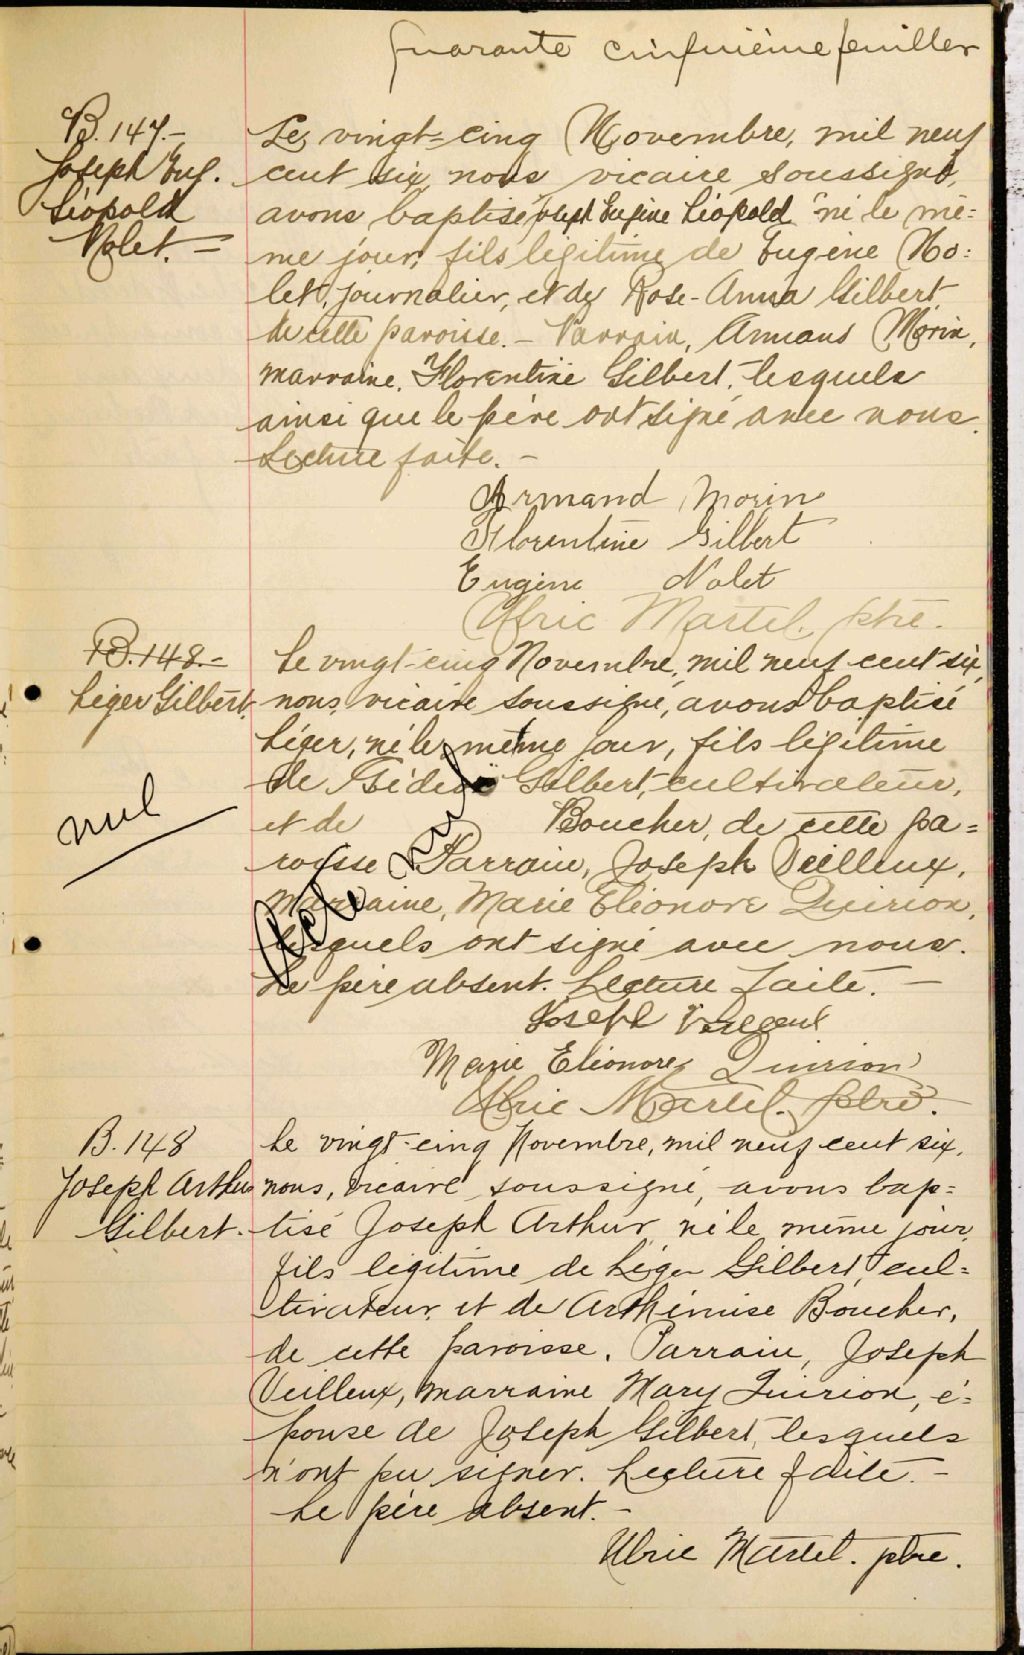 Quarante cinquième feuillet
B. 147.-
Joseph Eug.
Léopold
Nolet. -
Le vingt-cinq Novembre, mil neuf
cent six, nous vicaire soussigné,
avons baptisé Joseph Eugène Léopold né le mê=
me jour, fils légitime de Eugène No=
let, journalier, et de Rose-Anna Gilbert,
de cette paroisse. - Parrain, Armand Morin,
marraine, Florentine Gilbert, lesquels
ainsi que le père ont signé avec nous.
Lecture faite. -
Armand Morin
Florentine Gilbert
Eugène Nolet
Ulric Martel, ptre.
B. 148.-
Léger Gilbert.
nul
Le vingt-cinq Novembre, mil neuf cent six,
nous, vicaire soussigné, avons baptisé
Léger, né le même jour, fils légitime
de Gédéon Gilbert, cultivateur,
et de Boucher, de cette pa=
roisse Parrain, Joseph Veilleux,
marraine, Marie Eléonore Quirion,
lesquels ont signé avec nous.
Le père absent. Lecture faite. -
Acte nul
Joseph
Marie Eléonore Quirion
Ulric Martel. ptre.
B. 148
Joseph Arthur
Gilbert.
Le vingt-cinq Novembre, mil neuf cent six,
nous, vicaire soussigné, avons bap=
tisé Joseph Arthur, né le même jour,
fils légitime de Léger Gilbert, cul=
tivateur, et de Arthémise Boucher,
de cette paroisse. Parrain, Joseph
Veilleux, marraine Mary Quirion, é=
pouse de Joseph Gilbert, lesquels
n'ont pu signer. Lecture faite. -
Le père absent. -
Ulric Martel. ptre.